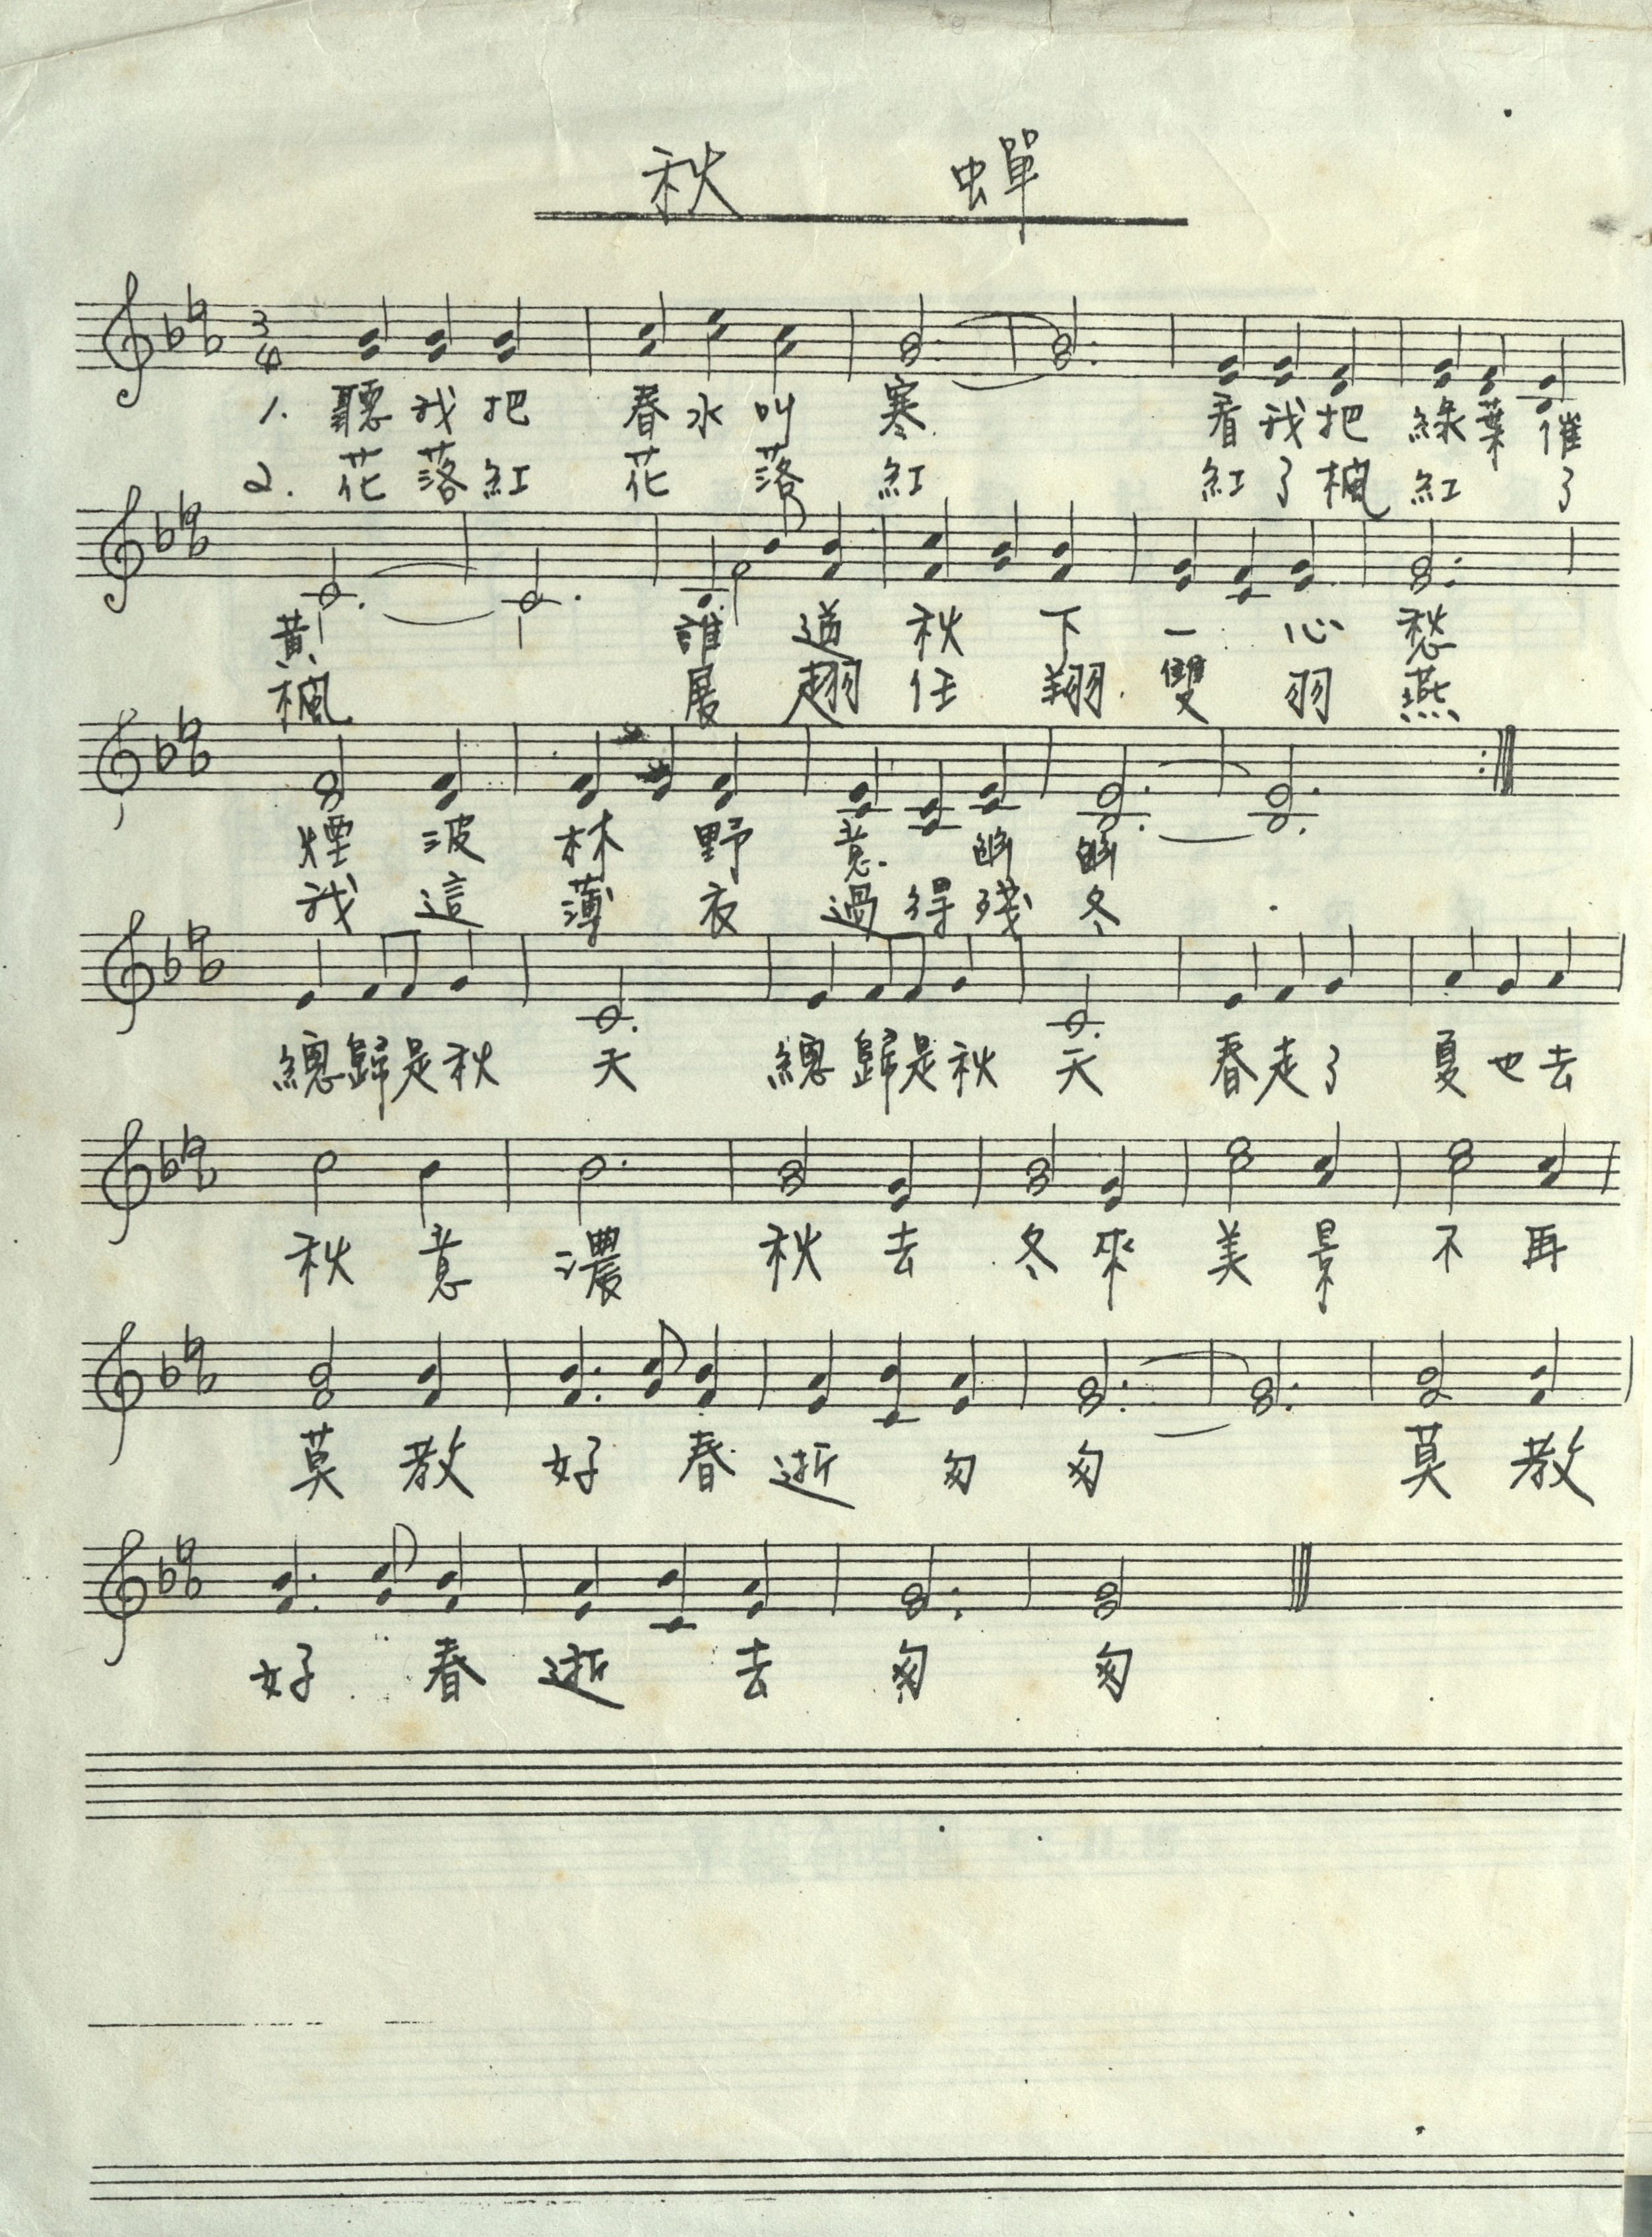 秋 蟬
3/4
1. 聽我把 春水叫 寒 看我把 綠葉催
2. 花落紅 花落 紅 紅了楓 紅了
黃 誰道秋下一心愁
楓 展翅任翔雙羽燕
煙波林野意幽幽
我這薄衣過得殘冬
總歸是秋 天 總歸是秋 天 春走了 夏也去
秋意濃 秋去冬來美景不再
莫教好春逝匆匆 莫教
好春逝去匆匆